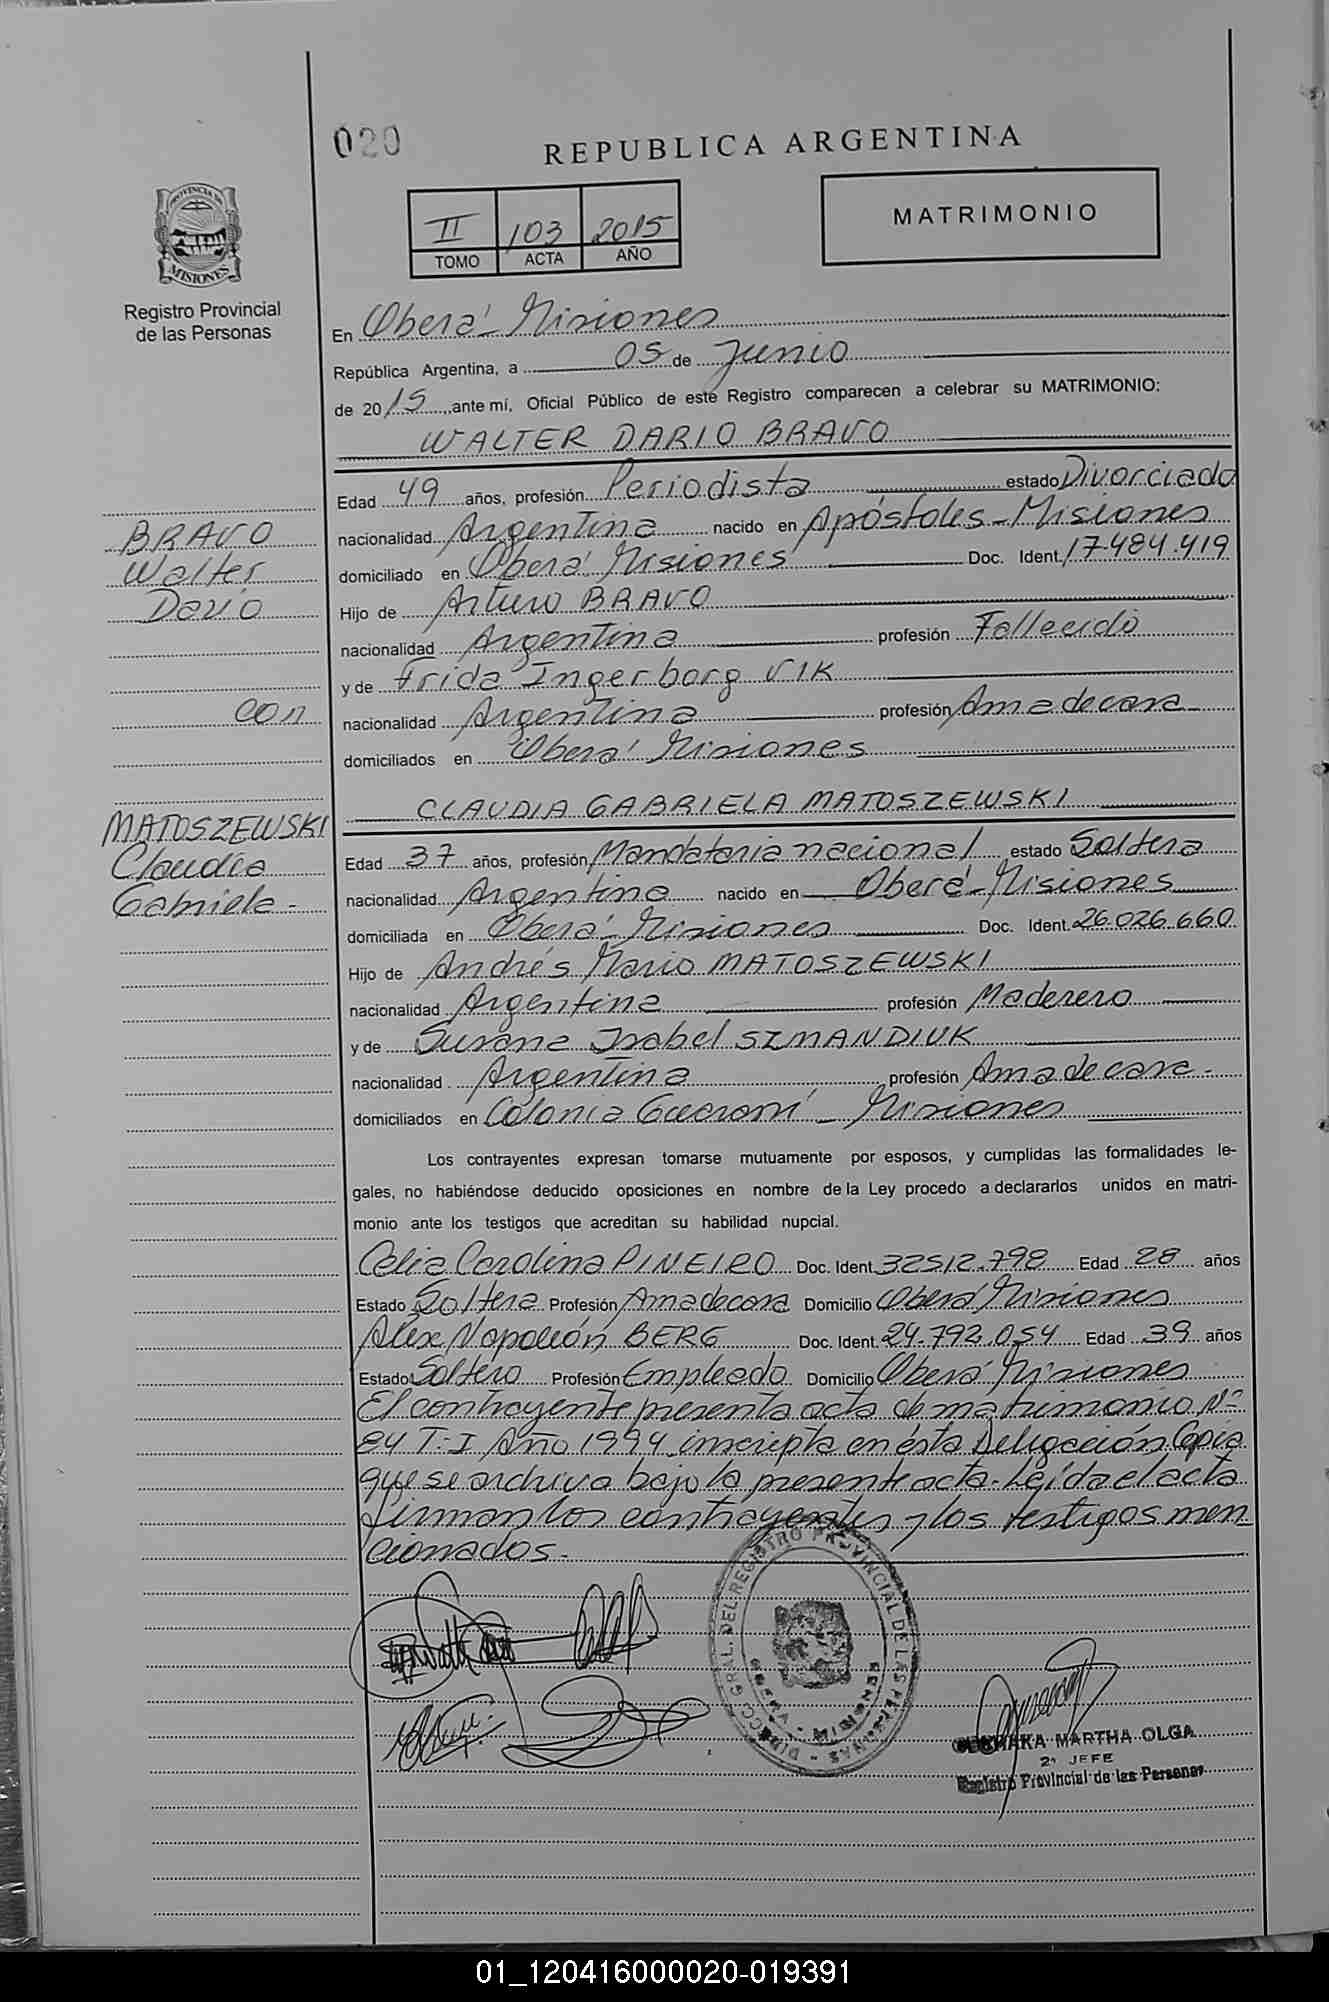 020
REPUBLICA ARGENTINA
PROVINCIA DE
MISIONES
II 103 2015
TOMO ACTA AÑO
MATRIMONIO
Registro Provincial
de las Personas
En Oberá - Misiones
República Argentina, a 05 de Junio
de 2015, ante mí, Oficial Público de este Registro comparecen a celebrar su MATRIMONIO:
WALTER DARIO BRAVO
Edad 49 años, profesión Periodista estado Divorciado
nacionalidad Argentina nacido en Apóstoles - Misiones
domiciliado en Oberá Misiones Doc. Ident. 17.484.419
Hijo de Arturo BRAVO
nacionalidad Argentina profesión Fallecido
y de Frida Ingerborg VIK
nacionalidad Argentina profesión Ama de casa
domiciliados en Oberá Misiones
BRAVO
Walter
Dario
con
MATOSZEWSKI
Claudia
Gabriela -
CLAUDIA GABRIELA MATOSZEWSKI
Edad 37 años, profesión Mandataria nacional estado Soltera
nacionalidad Argentina nacido en Oberá - Misiones
domiciliada en Oberá - Misiones Doc. Ident. 26.026.660
Hijo de Andrés Mario MATOSZEWSKI
nacionalidad Argentina profesión Maderero
y de Susana Isabel SZMANDIUK
nacionalidad Argentina profesión Ama de casa -
domiciliados en Colonia Guaraní - Misiones
Los contrayentes expresan tomarse mutuamente por esposos, y cumplidas las formalidades le-
gales, no habiéndose deducido oposiciones en nombre de la Ley procedo a declararlos unidos en matri-
monio ante los testigos que acreditan su habilidad nupcial.
Celia Carolina PINEIRO Doc. Ident. 32512.798 Edad 28 años
Estado Soltera Profesión Ama de casa Domicilio Oberá Misiones
Alex Napoleón BERG Doc. Ident. 24.792.054 Edad 39 años
Estado Soltero Profesión Empleado Domicilio Oberá Misiones
El contrayente presenta acta de matrimonio Nº
84 T: I Año 1994 inscripta en ésta Delegación. Copia
que se archiva bajo la presente acta. Leída el acta
firman los contrayentes y los testigos men
cionados.
DIRECC GRAL. DEL REGISTRO PROVINCIAL DE LAS PERSONAS
OBERA - MISIONES
MARTHA OLGA
2º JEFE
Registro Provincial de las Personas
01_120416000020-019391